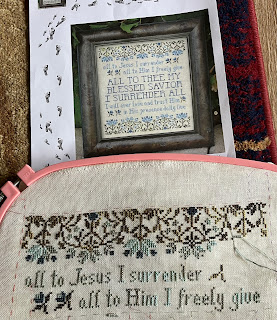 all to Jesus I surrender
all to Him I freely give
ALL TO THEE MY
BLESSED SAVIOR
I SURRENDER ALL
I will ever love and trust Him
in His presence daily live
all to Jesus I surrender
all to Him I freely give